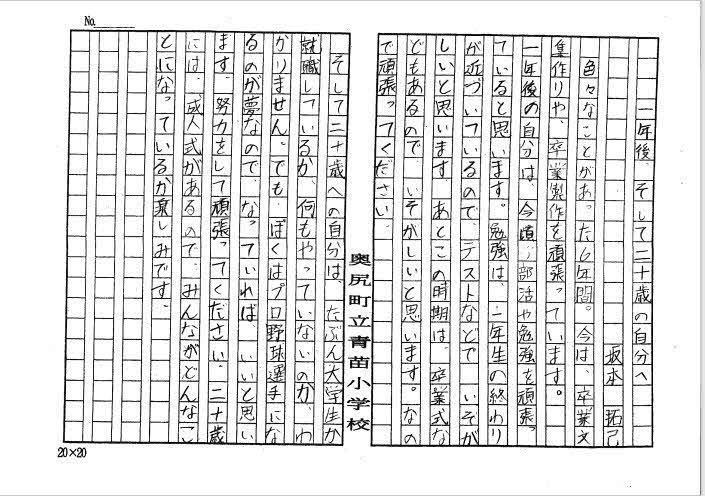 No.
一年後、そして二十歳の自分へ
坂本 拓己
色々なことがあった6年間。今は、卒業文
集作りや、卒業製作を頑張っています。
一年後の自分は、今頃、部活や勉強を頑張っ
ていると思います。勉強は、一年生の終わり
が近づいているので、テストなどで いそが
しいと思います。あとこの時期は、卒業式な
どもあるので いそがしいと思います。なの
で頑張ってください。
奥尻町立青苗小学校
そして二十歳への自分は、たぶん大学生か
就職しているか、何もやっていないのか、わ
かりません。でも、ぼくはプロ野球選手にな
るのが夢なので、なっていれば、いいと思い
ます。努力をして頑張ってください。二十歳
には、成人式があるので、みんながどんなこ
とになっているか楽しみです。
20×20